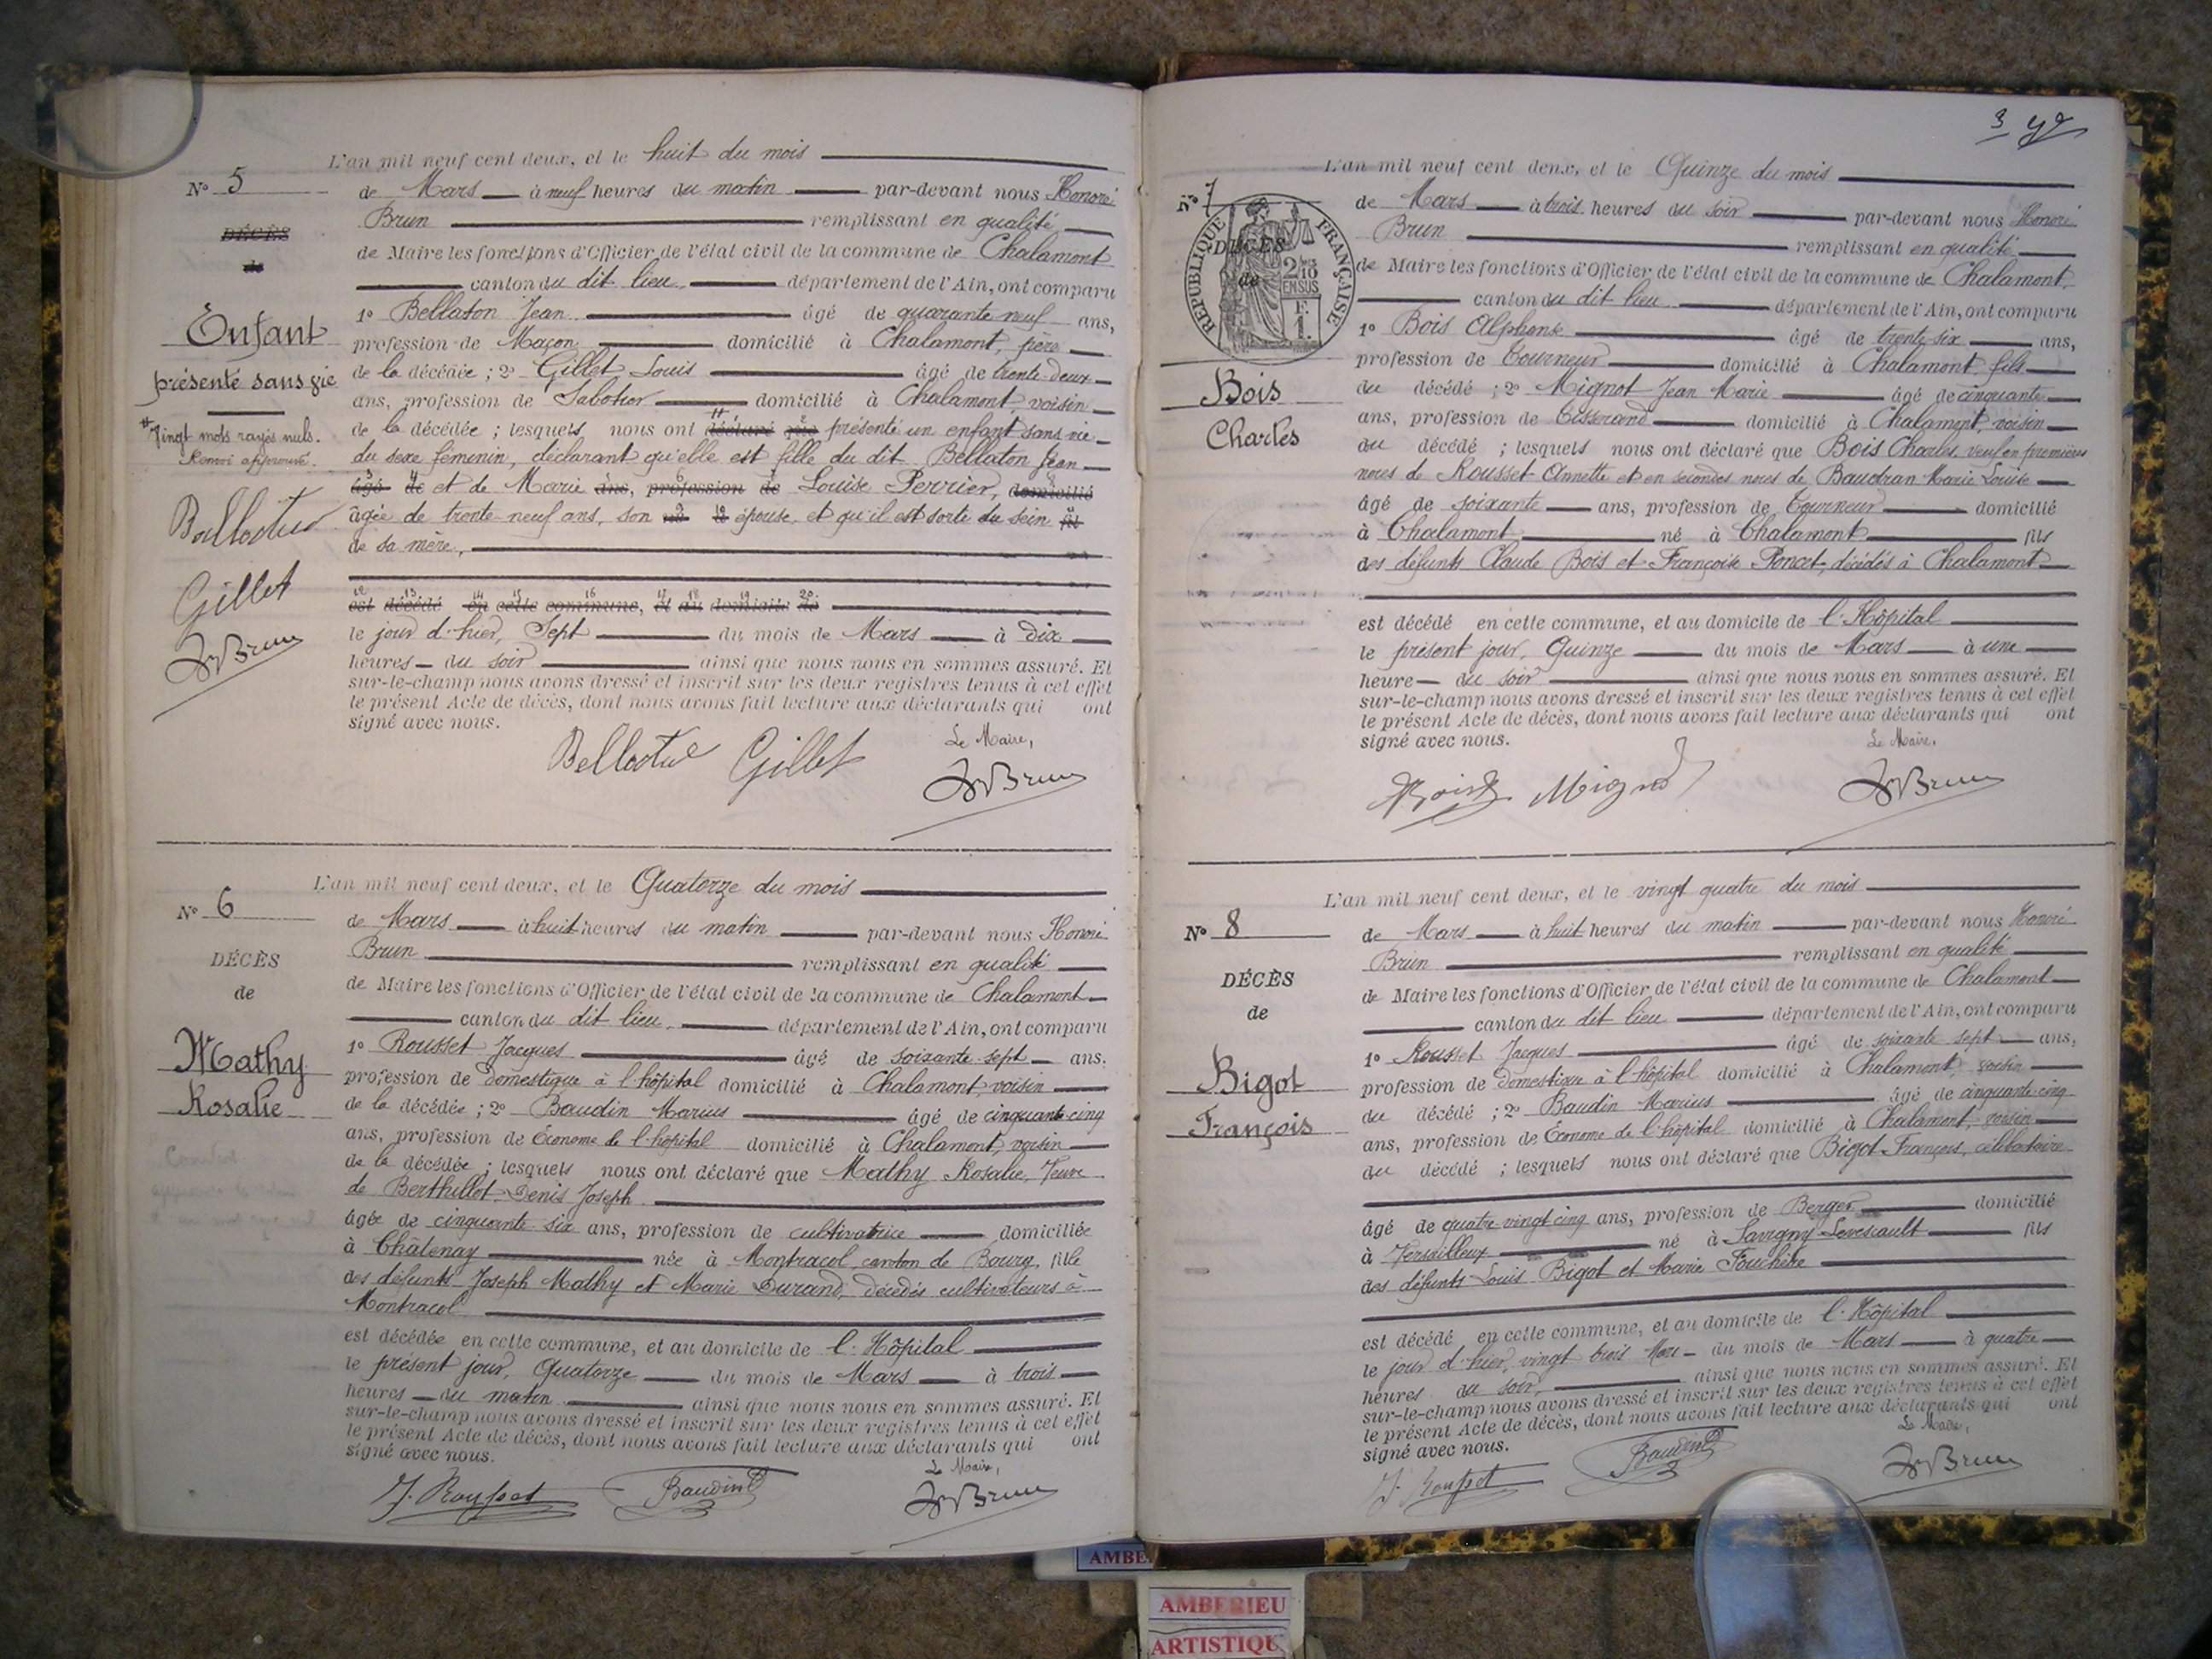 L'an mil neuf cent deux, et le huit du mois
N° 5
de Mars à neuf heures du matin par-devant nous Honoré
Brun remplissant en qualité
DÉCÈS
de
de Maire les fonctions d'Officier de l'état civil de la commune de Chalamont
canton du dit lieu, département de l'Ain, ont comparu
1° Bellaton Jean âgé de quarante neuf ans,
Enfant
présenté sans vie
profession de Maçon domicilié à Chalamont, père
de la décédée ; 2° Gillet Louis âgé de trente-deux
ans, profession de Sabotier domicilié à Chalamont, voisin
# Vingt mots rayés nuls.
Renvoi approuvé.
de la décédée ; lesquels nous ont déclaré que présenté un enfant sans vie
du sexe féminin, déclarant qu'elle est fille du dit Bellaton Jean
âgé de et de Marie ans, profession de Louise Perrier, domicilié
âgée de trente-neuf ans, son né à épouse, et qu'il est sorti du sein fil
de sa mère,
Bellaton
Gillet
HBrun
est décédé en cette commune, et au domicile de
le jour d'hier, Sept du mois de Mars à dix
heures du soir ainsi que nous nous en sommes assuré. Et
sur-le-champ nous avons dressé et inscrit sur les deux registres tenus à cet effet
le présent Acte de décès, dont nous avons fait lecture aux déclarants qui ont
signé avec nous.
Le Maire,
Bellaton Gillet HBrun
L'an mil neuf cent deux, et le Quatorze du mois
N° 6
de Mars à huit heures du matin par-devant nous Honoré
Brun remplissant en qualité
DÉCÈS
de
de Maire les fonctions d'Officier de l'état civil de la commune de Chalamont
canton du dit lieu, département de l'Ain, ont comparu
1° Rousset Jacques âgé de soixante-sept ans.
Mathy
Rosalie
profession de domestique à l'hôpital domicilié à Chalamont, voisin
de la décédée ; 2° Baudin Marius âgé de cinquante-cinq
ans, profession de Économe de l'hôpital domicilié à Chalamont, voisin
de la décédée ; lesquels nous ont déclaré que Mathy Rosalie, Veuve
de Berthillot Denis Joseph
âgée de cinquante six ans, profession de cultivatrice domiciliée
à Châtenay née à Montracol, canton de Bourg, fille
des défunts Joseph Mathy et Marie Durand, décédés cultivateurs à
Montracol
est décédée en cette commune, et au domicile de l'Hôpital
le présent jour, Quatorze du mois de Mars à trois
heures du matin ainsi que nous nous en sommes assuré. Et
sur-le-champ nous avons dressé et inscrit sur les deux registres tenus à cet effet
le présent Acte de décès, dont nous avons fait lecture aux déclarants qui ont
signé avec nous.
Le Maire,
J. Rousset Baudin HBrun
3
L'an mil neuf cent deux, et le Quinze du mois
N° 7
de Mars à trois heures du soir par-devant nous Honoré
Brun remplissant en qualité
RÉPUBLIQUE FRANÇAISE
2/10
EN SUS
F.
1.
DÉCÈS
de
de Maire les fonctions d'Officier de l'état civil de la commune de Chalamont,
canton du dit lieu département de l'Ain, ont comparu
1° Bois Alphonse âgé de trente-six ans,
profession de Tourneur domicilié à Chalamont fils
Bois
Charles
du décédé ; 2° Mignot Jean Marie âgé de cinquante
ans, profession de Tisserand domicilié à Chalamont, voisin
du décédé ; lesquels nous ont déclaré que Bois Charles, veuf en premières
noces de Rousset Annette et en secondes noces de Baudran Marie Louise
âgé de soixante ans, profession de Tourneur domicilié
à Chalamont né à Chalamont fils
des défunts Claude Bois et Françoise Poncet, décédés à Chalamont
est décédé en cette commune, et au domicile de l'Hôpital
le présent jour, Quinze du mois de Mars à une
heure du soir ainsi que nous nous en sommes assuré. Et
sur-le-champ nous avons dressé et inscrit sur les deux registres tenus à cet effet
le présent Acte de décès, dont nous avons fait lecture aux déclarants qui ont
signé avec nous.
Le Maire,
Bois Mignot HBrun
L'an mil neuf cent deux, et le vingt quatre du mois
N° 8
de Mars à huit heures du matin par-devant nous Honoré
Brun remplissant en qualité
DÉCÈS
de
de Maire les fonctions d'Officier de l'état civil de la commune de Chalamont
canton du dit lieu département de l'Ain, ont comparu
1° Rousset Jacques âgé de soixante sept ans,
Bigot
François
profession de domestique à l'hôpital domicilié à Chalamont, voisin
du décédé ; 2° Baudin Marius âgé de cinquante-cinq
ans, profession de Économe de l'hôpital domicilié à Chalamont, voisin
du décédé ; lesquels nous ont déclaré que Bigot François, célibataire
âgé de quatre-vingt cinq ans, profession de Berger domicilié
à Versailleux né à Savigny-Levescault fils
des défunts Louis Bigot et Marie Fouchère
est décédé en cette commune, et au domicile de l'Hôpital
le jour d'hier, vingt trois du mois de Mars à quatre
heures du soir, ainsi que nous nous en sommes assuré. Et
sur-le-champ nous avons dressé et inscrit sur les deux registres tenus à cet effet
le présent Acte de décès, dont nous avons fait lecture aux déclarants qui ont
signé avec nous.
Le Maire,
J. Rousset Baudin HBrun
AMBE
AMBERIEU
ARTISTIQU